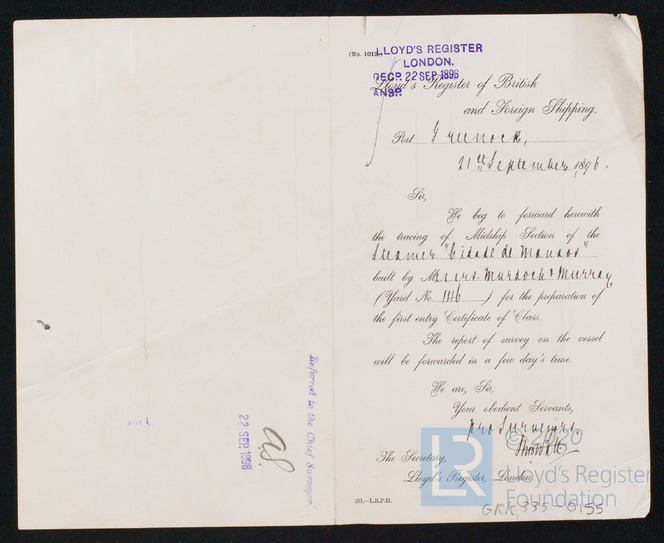 (No. 1012.)
LLOYD'S REGISTER
LONDON.
RECP. 22 SEP. 1896
ANSP.
Lloyd's Register of British
and Foreign Shipping.
Port Greenock,
21st September, 1896.
Sir,
We beg to forward herewith
the tracing of Midship Section of the
Steamer "Cidade de Manaos"
built by Messrs. Murdoch & Murray
(Yard No. 146) for the preparation of
the first entry Certificate of Class.
The report of survey on the vessel
will be forwarded in a few day's time.
We are, Sir,
Your obedient Servants,
pro Surveyors,
The Secretary,
Lloyd's Register, London
2H.—L.R.P.H.
GRK 335-0155
Referred to the Chief Surveyor
22 SEP 1896
LR
© 2020
Lloyd's Register
Foundation